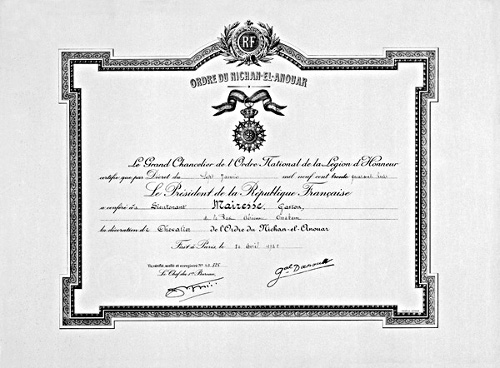 RF
ORDRE DU NICHAN-EL-ANOUAR
Le Grand Chancelier de l'Ordre National de la Légion d'Honneur
certifie que par Décret du Janvier mil neuf cent
Le Président de la République Française
a conféré à Lieutenant Mairesse, Gaston,
de la
la décoration de Chevalier de l'Ordre du Nichan-el-Anouar
Fait à Paris, le Avril
Vu, vérifié et enregistré N°
Le Chef du 1er Bureau,